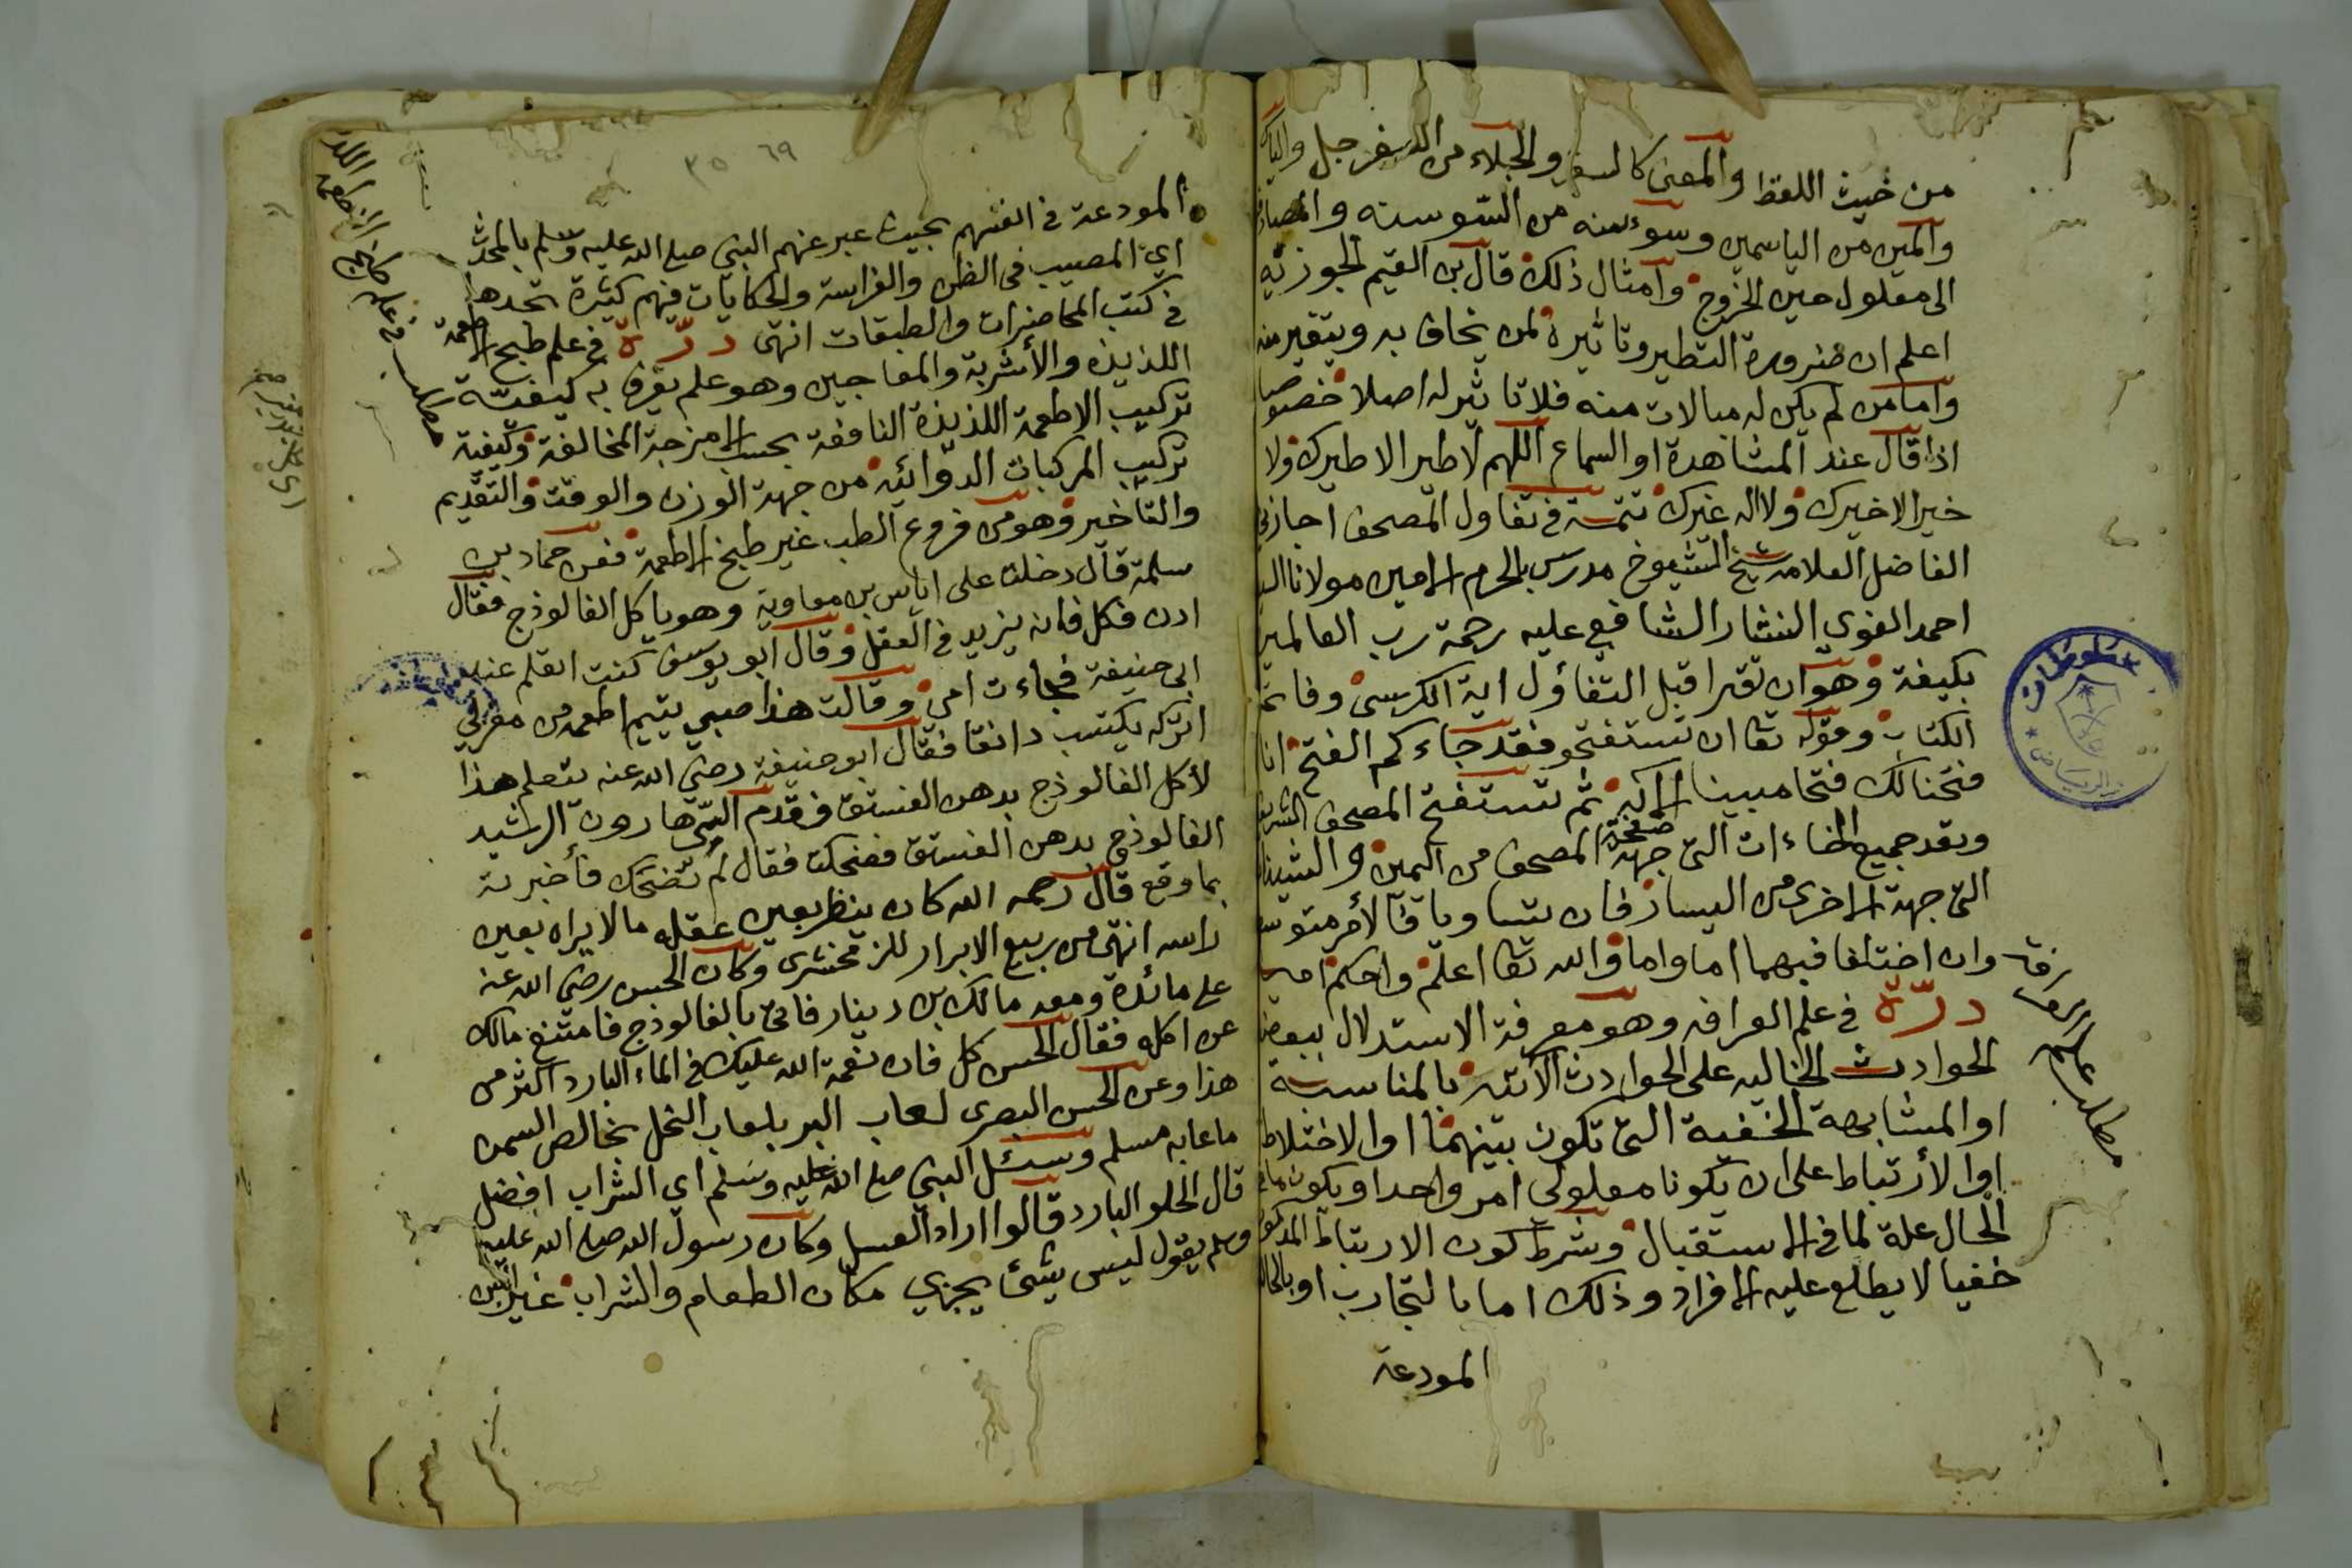 من حيث اللفظ والمعنى كالسفر والجلاء من السفرجل والياس
والمين من الياسمين وسوء سنه من السوسنه والمصادفة
الى معلول حين الخروج وامثال ذلك قال بن القيم الجوزيه
اعلم ان ضرورة التطير وتاثيره لمن يخاف به ويتغير منه
واما من لم يكن له مبالات منه فلا تاثير له اصلا خصوصا
اذا قال عند المشاهدة او السماع اللهم لا طير الا طيرك ولا
خير الا خيرك ولا اله غيرك تتمة في تفاول المصحف اجازني
الفاضل العلامه شيخ الشيوخ مدرس بالحرم الامين مولانا
احمد الغوي النشار الشافعي عليه رحمة رب العالمين
بكيفة وهو ان تقرا قبل التفاؤل اية الكرسي وفاتحة
الكتاب وقوله تعا ان تستفتحو فقد جاءكم الفتح انا
فتحنا لك فتحا مبينا الآية ثم تستفتح المصحف الشريف
وتعد جميع الخاءات التي جهة صفحة المصحف من اليمين والشينات
التي جهة الاخرى من اليسار فان تساويا فالأمر متوسط
وان اختلفا فبهما اما واما والله تعا اعلم واحكم
درّة في علم العرافه وهو معرفة الاستدلال ببعض
الحوادث الخاليه على الحوادث الآتيه بالمناسبة
او المشابهة الخفية التي تكون بينهما او الاختلاط
او الأرتباط على ان يكونا معلولي امر واحد او يكون ما في
الحال علة لما في الاستقبال وشرط كون الارتباط المذكور
خفيا لا يطلع عليه الافراد وذلك اما بالتجارب او بالحالة
المودعة
مطلب علم العرافة
٦٩ ٣٥
المودعة في انفسهم بحيث عبر عنهم النبي صلى الله عليه وسلم بالمحدث
اي المصيب في الظن والفراسة والحكايات فيهم كثيرة تجدها
في كتب المحاضرات والطبقات انتهى درّة في علم طبخ الاطعمة
اللذيذه والأشربة والمعاجين وهو علم يعرف به كيفية
تركيب الاطعمة اللذيذة النافعة بحسب الامزجة المخالفة وكيفية
تركيب المركبات الدوائيه من جهة الوزن والوقت والتقديم
والتاخير وهو من فروع الطب غير طبخ الاطعمة فعن حماد بن
سلمة قال دخلت على اياس بن معاوية وهو ياكل الفالوذج فقال
ادن فكل فانه يزيد في العقل وقال ابو يوسف كنت اتعلم عند
ابي حنيفة فجاءت امي وقالت هذا صبي يتيم اطعمه من مغزلي
اتركه يكتسب دانقا فقال ابو حنيفة رضي الله عنه يتعلم هذا
لأكل الفالوذج بدهن الفستق فقدم اليّ هارون الرشيد
الفالوذج بدهن الفستق فضحكت فقال لم تضحك فأخبرته
بما وقع قال رحمه الله كان ينظر بعين عقله ما لا يراه بعين
راسه انتهى من ربيع الابرار للزمخشري وكان الحسن رضي الله عنه
على مائدة ومعه مالك بن دينار فاتي بالفالوذج فامتنع مالك
عن اكله فقال الحسن كل فان نعمة الله عليك في الماء البارد اكثر من
هذا وعن الحسن البصرى لعاب البر بلعاب النحل بخالص السمن
ما عابه مسلم وسئل النبي صلى الله عليه وسلم اي الشراب افضل
قال الحلو البارد قالوا اراد العسل وكان رسول الله صلى الله عليه
وسلم يقول ليس يشئ يجزي مكان الطعام والشراب غير اللبن
مطلب في علم طبخ الاطعمة